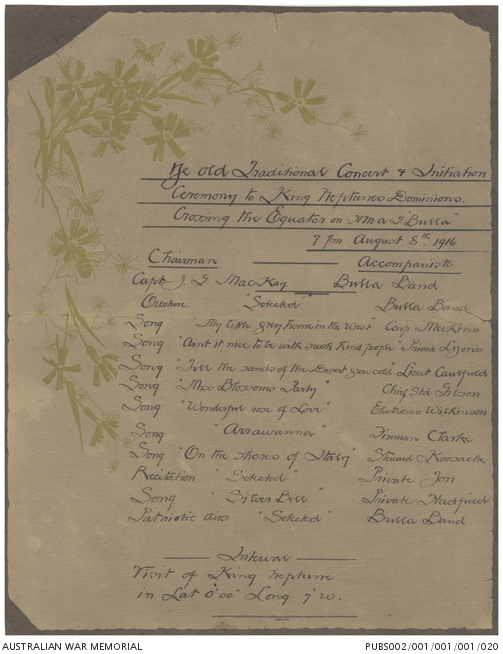 Ye old Traditional Concert & Initiation
Ceremony to King Neptunes Dominions.
Crossing the Equator on H.M.A.T "Bulla"
7 pm August 8th 1916
Chairman Accompanists
Capt J. G. MacKay Bulla Band
Overture "Selected" Bulla Band
Song "My little grey home in the West" Corp
Song "Aint it nice to be with such kind people" Private Lyons
Song "Till the sands of the Desert grow cold" Lieut Caulfield
Song "Mrs Blossoms Party" Chief Std Gibson
Song "Wonderful rose of Love" Electrician Wilkinson
Song "Arrawanna" Fireman Clarke
Song "On the shores of Italy" Steward
Recitation "Selected" Private
Song "Silver Bell" Private Hadfield
Patriotic airs "Selected" Bulla Band
Interval
Visit of King Neptune
in Lat 0°00' Long 7° W.
AUSTRALIAN WAR MEMORIAL PUBS002/001/001/001/020